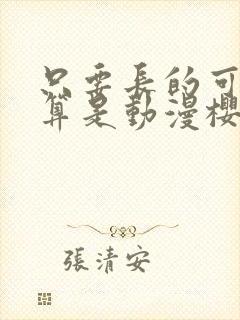 只要長的可
算是動漫櫻
張清安